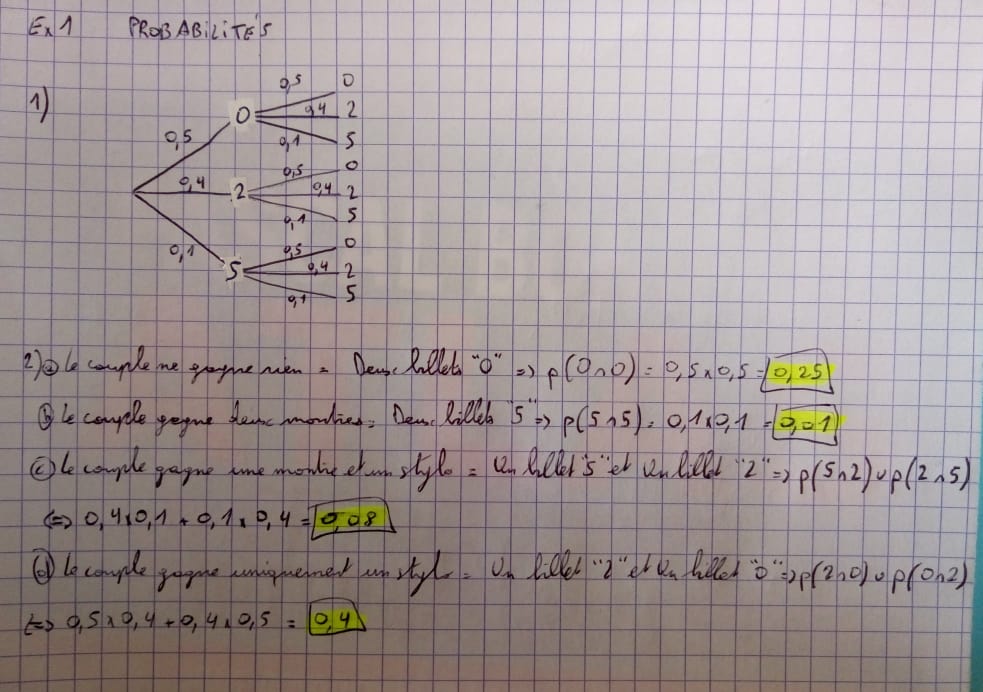 Ex 1 PROBABILITÉS
1)
0,5 0
0 0,4 2
0,5 0,1 5
0,5 0
0,4 2 0,4 2
0,1 5
0,1 0,5 0
5 0,4 2
0,1 5
2) a) Le couple ne gagne rien = Deux billets "0" => p(0∩0) = 0,5 x 0,5 = 0,25
b) Le couple gagne deux montres = Deux billets "5" => p(5∩5) = 0,1 x 0,1 = 0,01
c) Le couple gagne une montre et un stylo = Un billet "5" et Un billet "2" => p(5∩2) ∪ p(2∩5)
<=> 0,4 x 0,1 + 0,1 x 0,4 = 0,08
d) Le couple gagne uniquement un stylo = Un billet "2" et Un billet "0" => p(2∩0) ∪ p(0∩2)
<=> 0,5 x 0,4 + 0,4 x 0,5 = 0,4